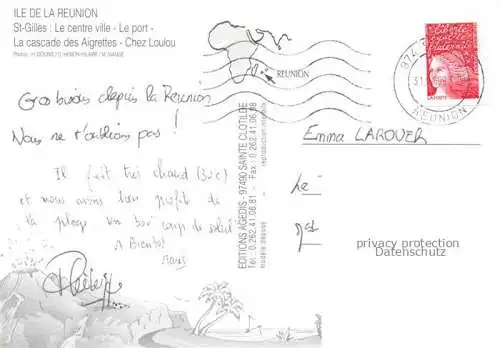 ILE DE LA REUNION
St-Gilles : Le centre ville - Le port -
La cascade des Aigrettes - Chez Loulou
Gros bisous depuis la Réunion
Nous ne t'oublions pas !
Il fait très chaud (30°c)
et nous avons bon profité de
la plage un bon coup de soleil
A Bientôt
EDITIONS AGEDIS - 97490 SAINTE CLOTILDE
Tél. 0.262.41.06.81 - Fax : 0.262.41.06.88
modèle déposé reproduction interdite
REUNION
974
REUNION
LA POSTE
Emma LAROUER
privacy protection
Datenschutz